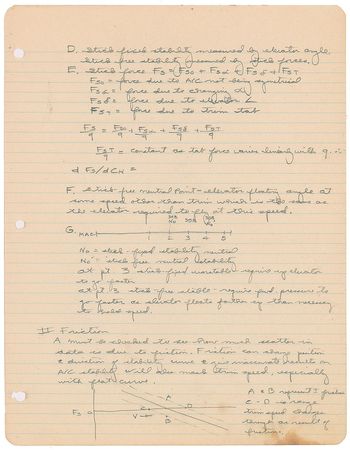 D. Stick fixed stability measured by elevator angle.
Stick free stability measured by stick forces.
E. Stick force Fs = Fso + Fsα + Fsδ + FsT
Fso = force due to A/C not being symetrical
Fsα = force due to changing α
Fsδ = force due to elevator ∠
FsT = force due to trim tab
Fs/q = Fso/q + Fsα/q + Fsδ/q + FsT/q
FsT/q = constant as tab force varies linearly with q.
d Fs/dCN =
F. Stick free neutral Point - elevator floating angle at
some speed other than trim which is the same as
the elevator required to fly at this speed.
G. MAC
1 2 3 4 5
No = stick-fixed stability neutral
No' = stick free neutral stability
at pt. 3 stick-fixed unstable - requires up elevator
to go faster
at pt 3 stick-free stable - requires fwd. pressure to
go faster as elevator floats further up than necessary
to hold speed.
II Friction
A must be checked to see how much scatter in
data is due to friction. Friction can change position
& direction of stability curve & give inaccurate results on
A/C stability. Will also mask trim speed, especially
with flat curve.
A & B represent friction
C - D is range
trim speed changes
through as result of
friction.
Fs 0
V
C
D
A
B